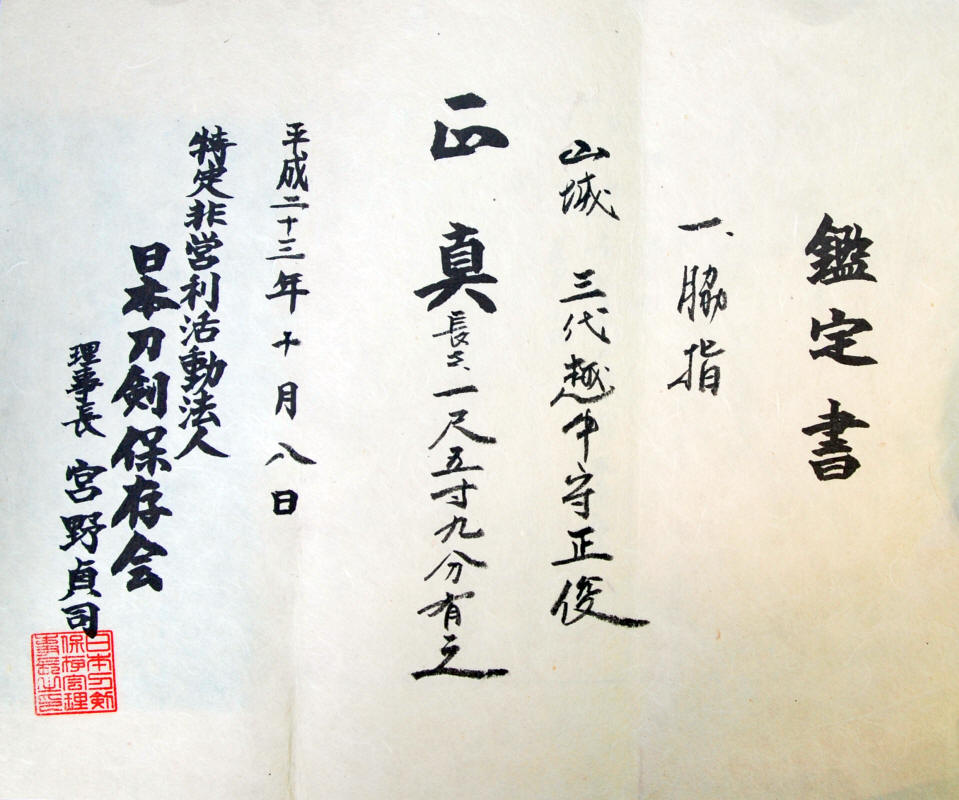 鑑定書
一、脇指
山城 三代越中守正俊
正真 長さ一尺五寸九分有之
平成二十三年十月八日
特定非営利活動法人
日本刀剣保存会
理事長 宮野貞司